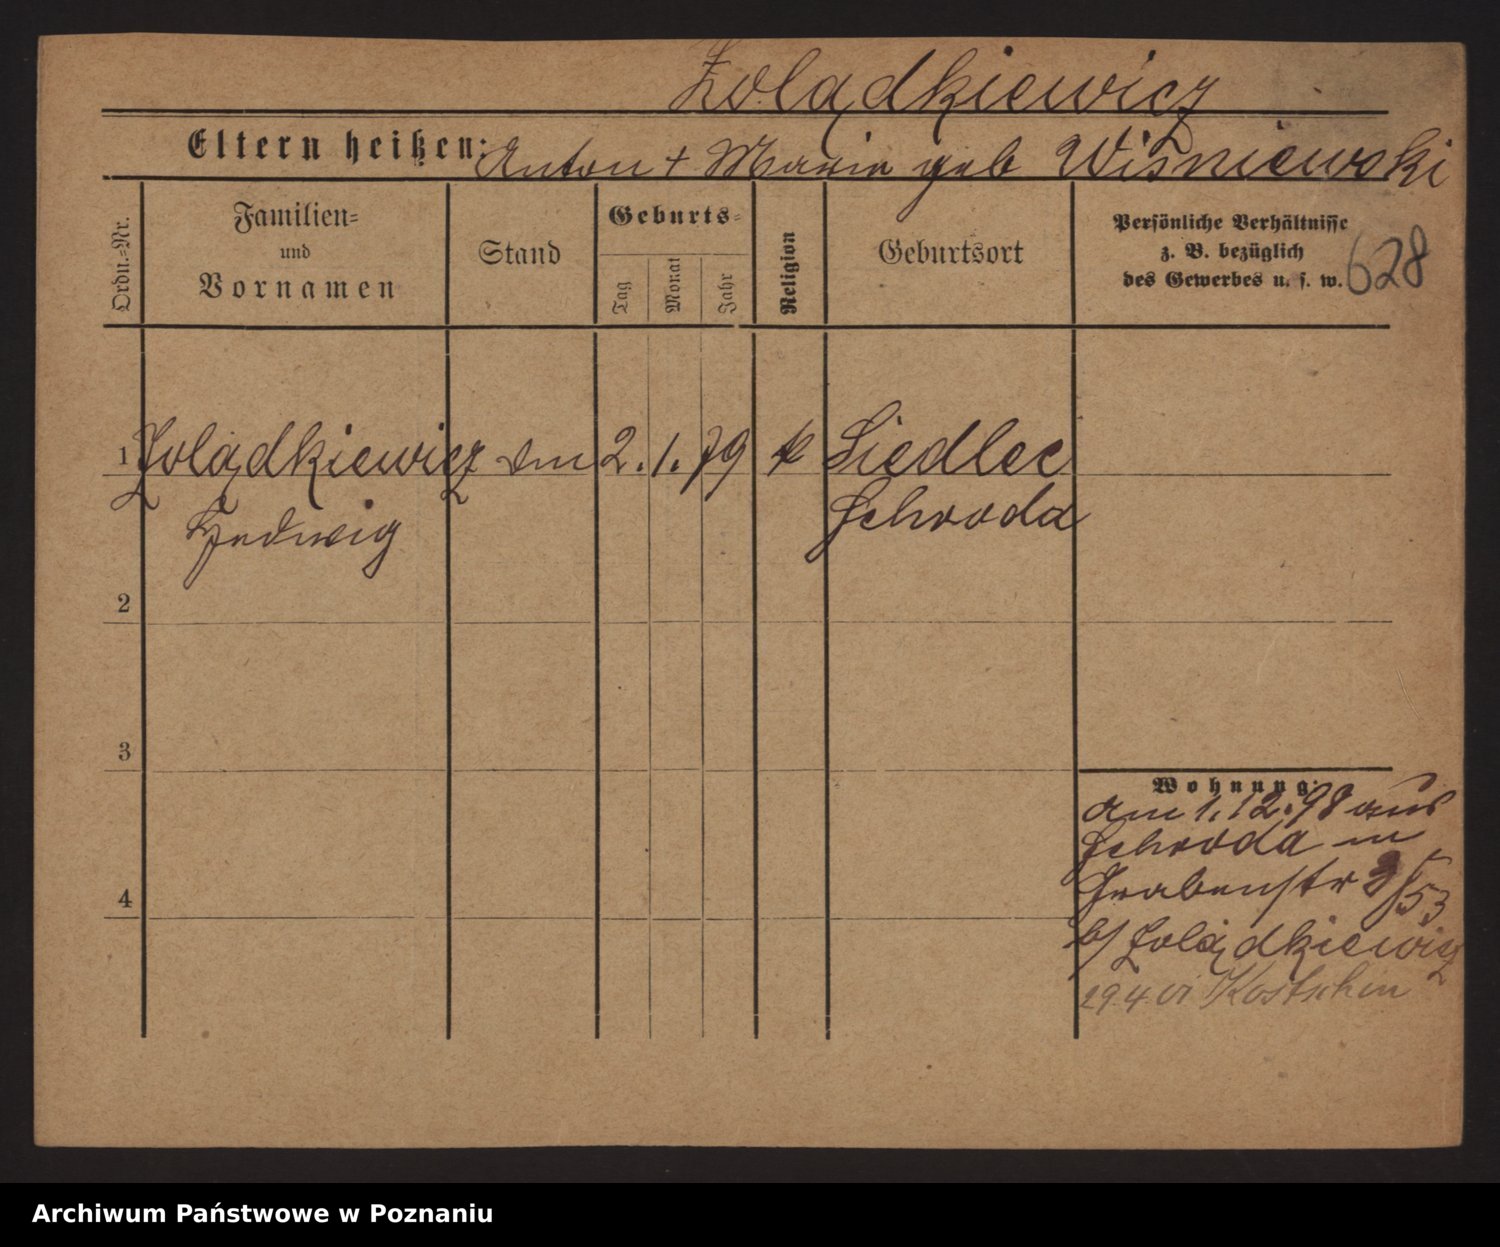 Żolądkiewicz
Eltern heißen: Anton + Marie geb Wiśniewski
Ordn.-Nr.
Familien-
und
Vornamen
Stand
Geburts-
Tag
Monat
Jahr
Religion
Geburtsort
Persönliche Verhältnisse
z. B. bezüglich
des Gewerbes u. s. w. 628
1 Żolądkiewicz 2. 1. 79 k Siedlec
Hedwig Schroda
2
3
Wohnung:
am 1.12.98 aus
Schroda in
4 Grabenstr 53
b/ Żolądkiewicz
29.4.01 Kostschin
Archiwum Państwowe w Poznaniu